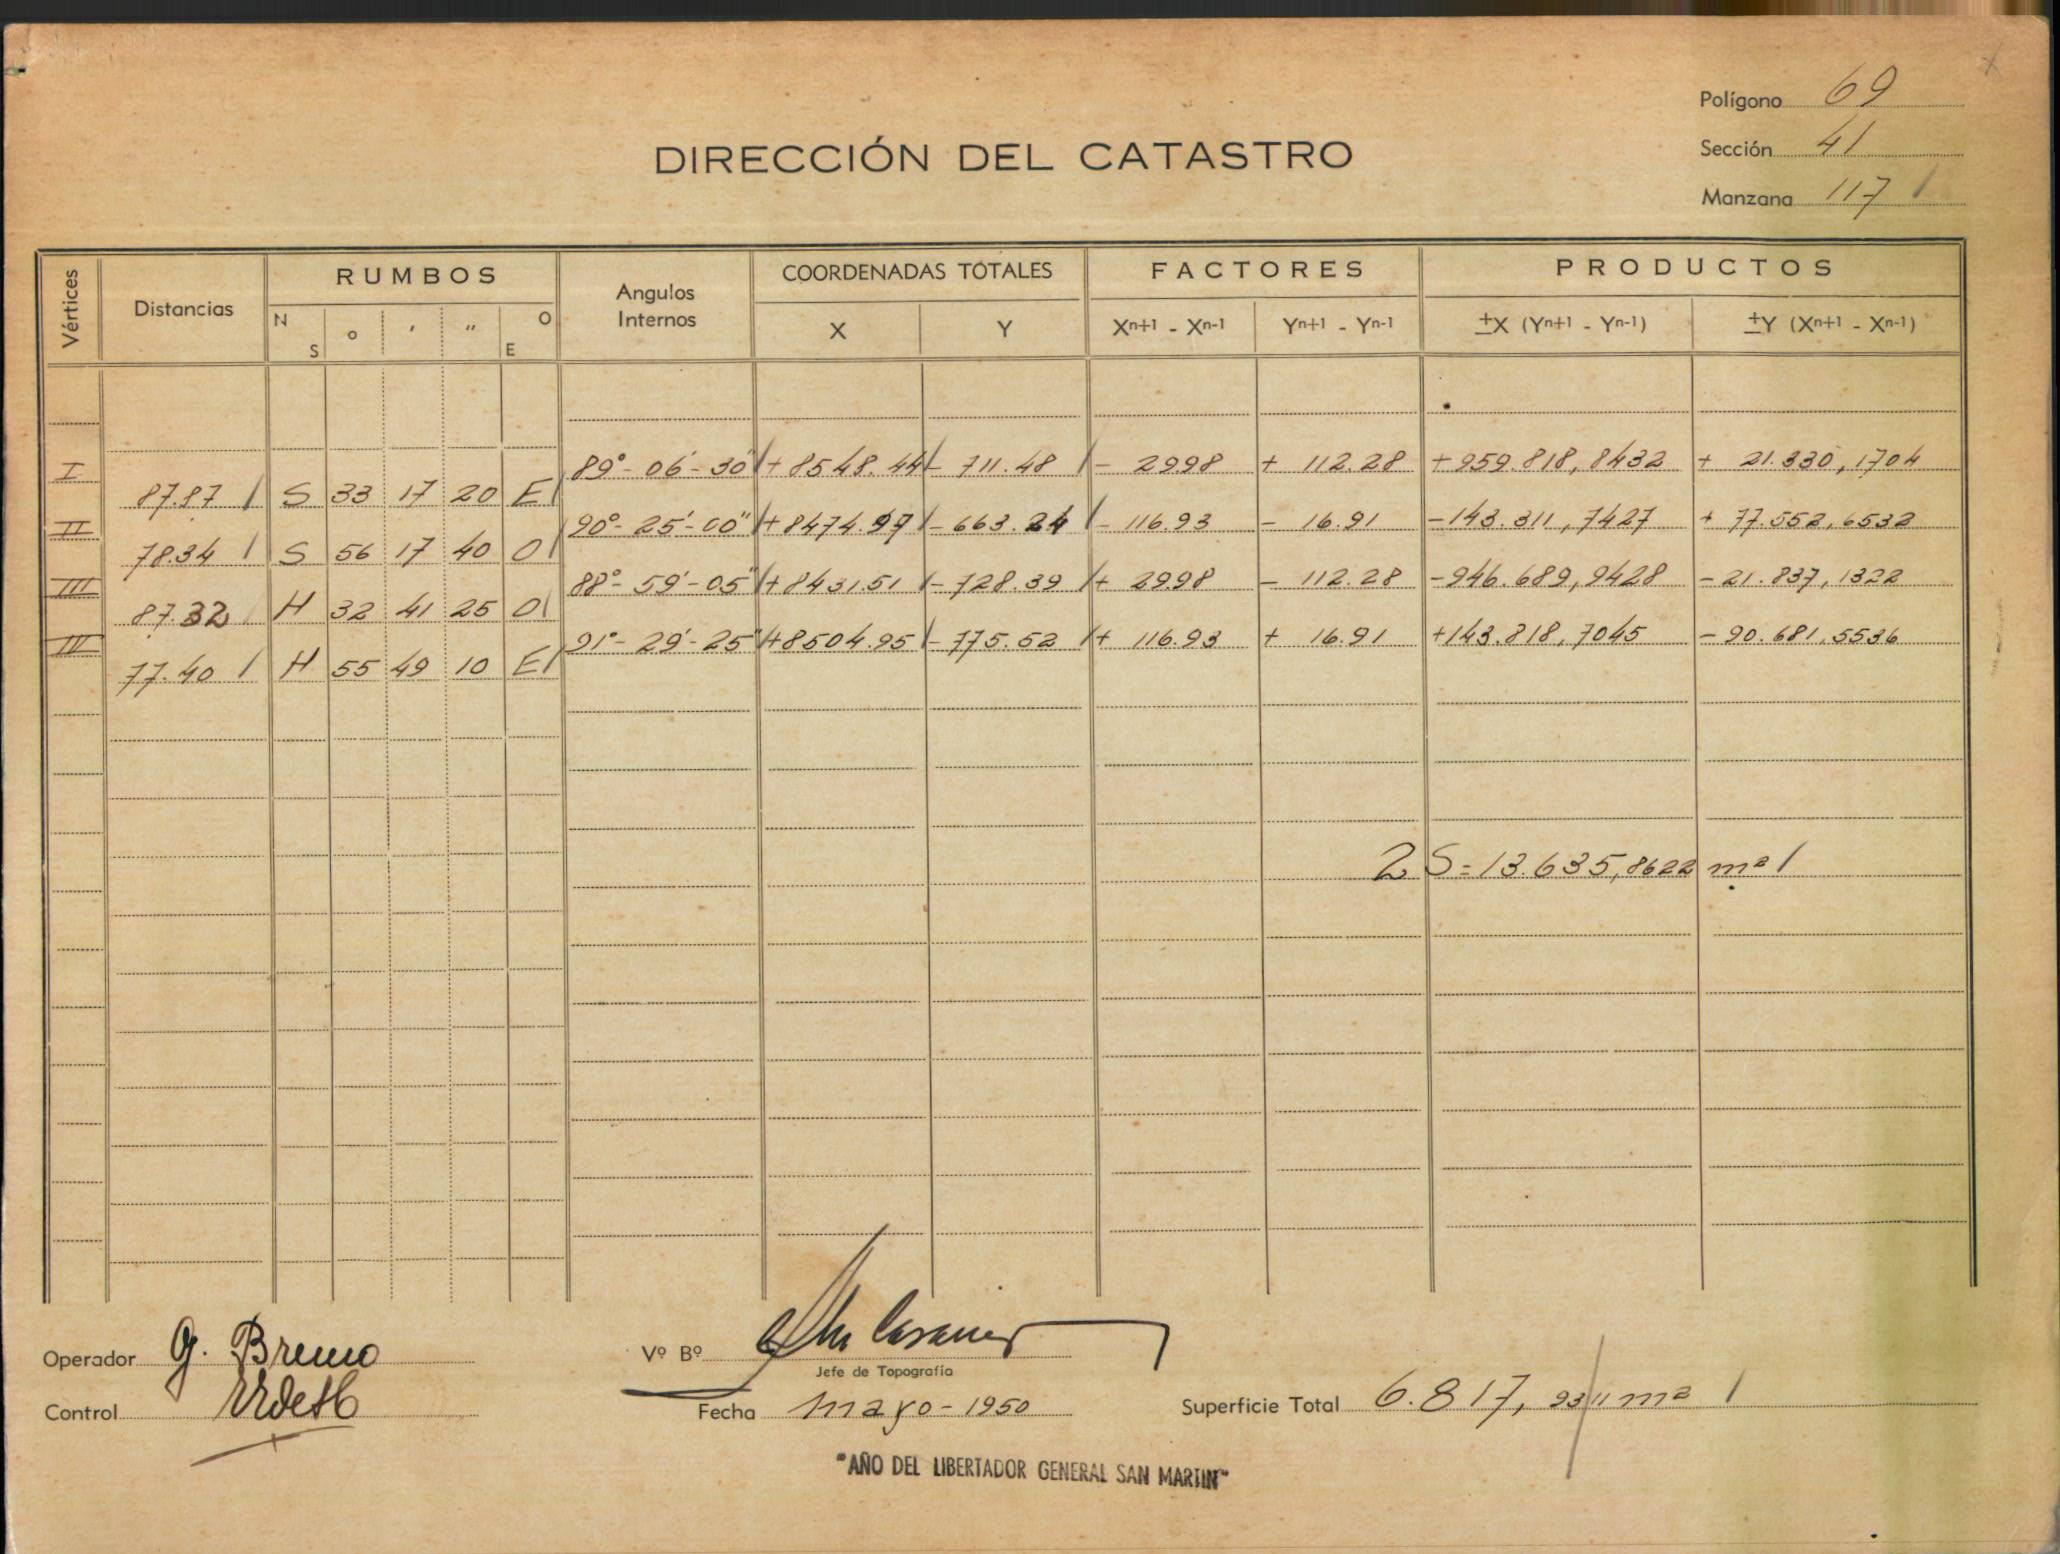 Polígono 69
DIRECCIÓN DEL CATASTRO
Sección 41
Manzana 117
Vértices Distancias RUMBOS Angulos Internos COORDENADAS TOTALES FACTORES PRODUCTOS
N S o ′ ″ O E X Y Xn+1 - Xn-1 Yn+1 - Yn-1 ±X (Yn+1 - Yn-1) ±Y (Xn+1 - Xn-1)
I 89°-06'-30" +8548.44 - 711.48 - 29.98 + 112.28 +959.818,8432 + 21.330,1704
87.87 S 33 17 20 E
II 90°-25'-00" +8474.97 - 663.24 - 116.93 - 16.91 -143.311,7427 + 77.552,6532
78.34 S 56 17 40 O
III 88°-59'-05" +8431.51 - 728.39 + 29.98 - 112.28 -946.689,9428 - 21.837,1322
87.32 N 32 41 25 O
IV 91°-29'-25" +8504.95 - 775.52 + 116.93 + 16.91 +143.818,7045 - 90.681,5536
77.40 N 55 49 10 E
2 S = 13.635,8622 m²
Operador G. Bremo
Vº Bº
Jefe de Topografía
Control
Fecha mayo - 1950
Superficie Total 6.817,9311 m²
"AÑO DEL LIBERTADOR GENERAL SAN MARTIN"